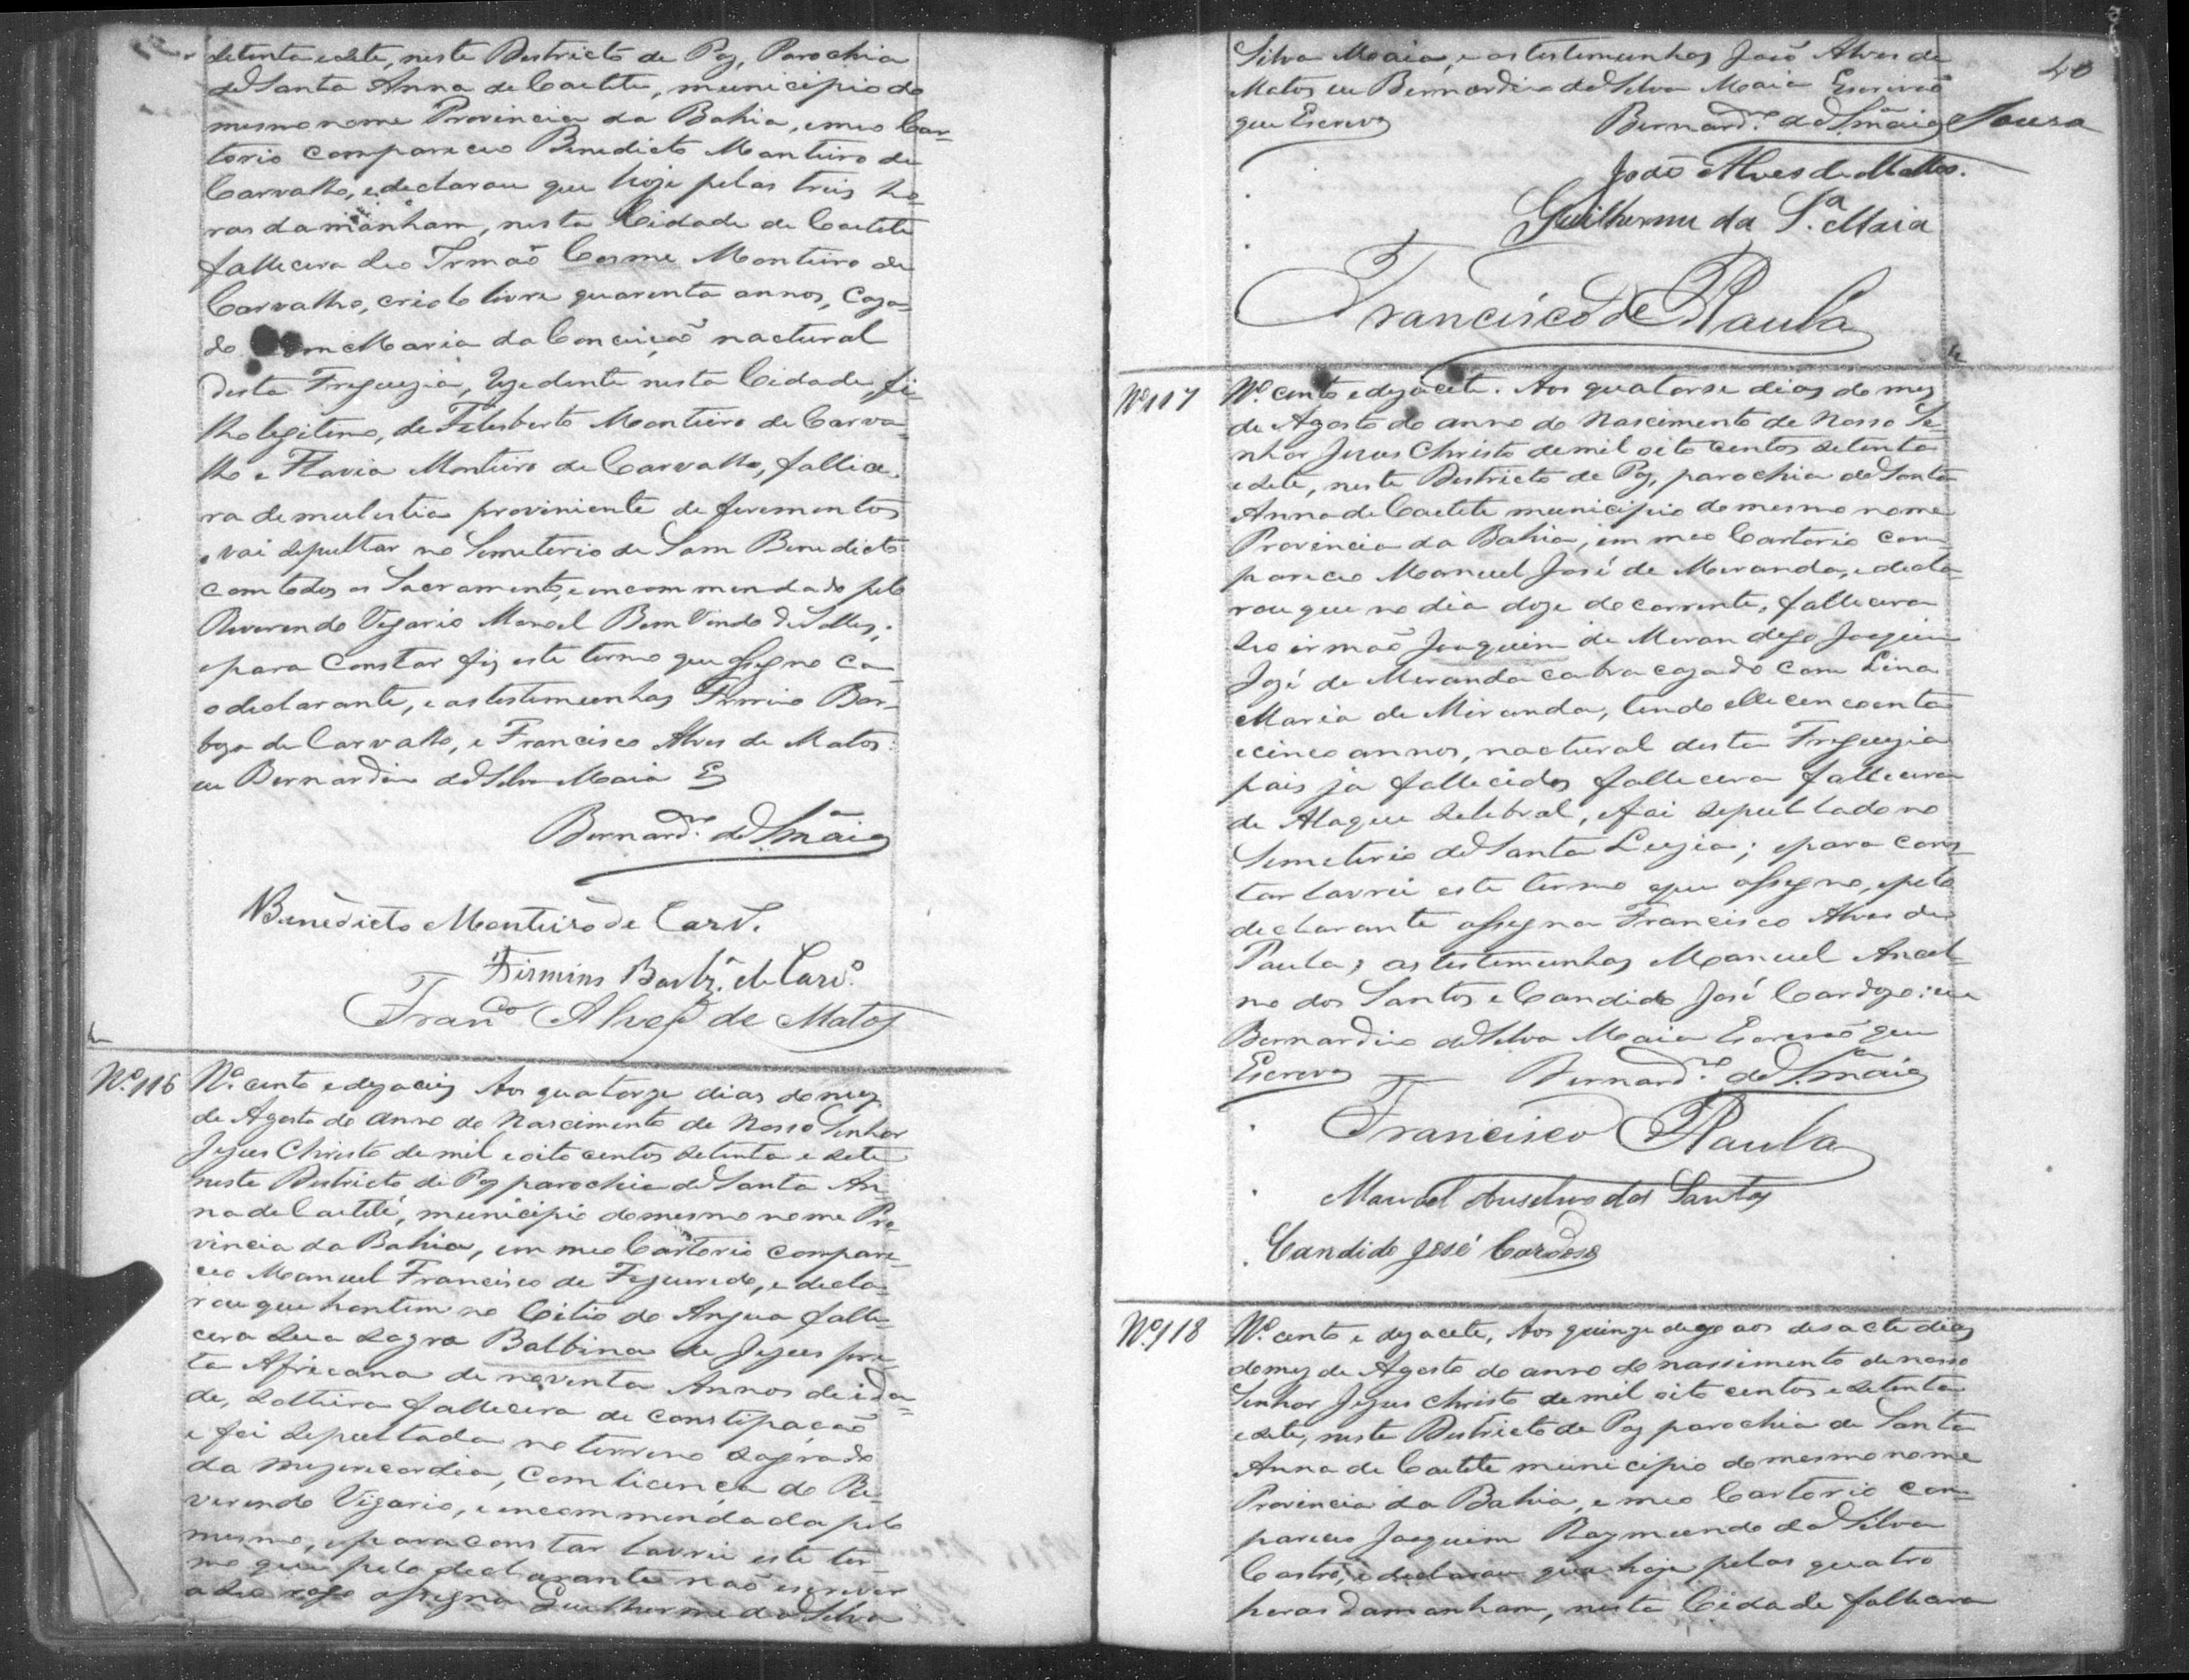 setenta e sete, neste Destricto de Paz, Parochia
de Santa Anna de Caetete, municipio do
mesmo nome Provincia da Bahia, em meo Car-
torio compareceo Benedicto Monteiro de
Carvalho, e declarou que hoje pelas tres ho-
ras da manham, nesta Cidade de Caetete
fallecera seo Irmão Cosme Monteiro de
Carvalho, criolo livre quarenta annos, Caza-
do com Maria da Conceição nactural
desta Freguezia, rezedente nesta Cidade, fi-
lho legitimo, de Felesberto Monteiro de Carva-
lho e Flavia Monteiro de Carvalho, fallice-
ra de mulestia proviniente de ferementos
e vai sepultar no Semeterio de Sam Benedicto
com todos os Sacramentos, encommendado pelo
Reverendo Vigario Manoel Bem Vindo de Salles;
e para constar fiz este termo que assigno co-
o declarante, e as testemunhas Firmino Bar-
boza de Carvalho, e Francisco Alves de Matos:
eu Bernardino da Silva Maia
Bernard.no da S.a Maia
Benedicto Monteiro de Carv.
Firmino Barbz.a de Carv.o
Fran.co Alves de Matos
Nº 116 Nº cento e dezaceis Aos quatorze dias do mez
de Agosto do anno do Nascimento de Nosso Senhor
Jezus Christo de mil e oito centos setenta e sete
neste Destricto de Paz parochia de Santa An-
na de Caetité, municipio do mesmo nome Pro-
vincia da Bahia, em meo Cartorio compare-
ceo Manuel Francisco de Figueredo, e decla-
rou que hontem no Citio do Angua falle-
cera sua sogra Balbina de Jezus pre-
ta Africana de noventa Annos de ida-
de, solteira fallecera de constipação
e foi sepultada no terreno sagrado
da Mizericordia, com licença do Re-
verendo Vigario, e encommendada pelo
mesmo, e para constar lavrei este ter-
mo que pelo declarante não escrever
a seo rogo assigna Guilherme da Silva
40
Silva Maia, e as testemunhas João Alves de
Matos eu Bernardino da Silva Maia Escrivão
que Escrevy Bernard.no da S.a Maia Souza
João Alves de Mattos.
Guilherme da S.a Maia
Francisco de Paula
Nº 117 Nº cento e dezacete. Aos quatorse dias do mez
de Agosto do anno do Nascimento de Nosso Se-
nhor Jezus Christo de mil oito centos setenta
e sete, neste Destricto de Paz, parochia de Santa
Anna de Caetete municipio do mesmo nome
Provincia da Bahia, em meo Cartorio com-
pareceo Manuel José de Meranda, e decla-
rou que no dia doze do corrente, fallecera
seo irmão Joaquim de Meran digo Joaquim
José de Meranda cabra cazado com Lina
Maria de Miranda, tendo elle cencoenta
e cinco annos, nactural desta Freguezia
pais ja fallecidos fallecera fallecera
de Ataque Selebral, e foi sepultado no
Semeterio de Santa Luzia; e para cons-
tar lavrei este termo que assigno, e pelo
declarante assigna Francisco Alves de
Paula; as testemunhas Manuel Ancel-
mo dos Santos e Candido José Cardozo: eu
Bernardino da Silva Maia Escrivão que
Escrevy Bernard.no da S.a Maia
Francisco Paula
Manoel Anselmo dos Santos
Candido José Cardoso
Nº 118 Nº cento e dezacete, Aos quinze digo aos desacete dias
do mez de Agosto do anno do nassimento de nosso
Senhor Jezus Christo de mil oito centos e setenta
e sete, neste Destricto de Paz parochia de Santa
Anna de Caetete municipio do mesmo nome
Provincia da Bahia, e meo Cartorio com-
pareceo Joaquim Raymundo da Silva
Castro, e declarou que hoje pelas quatro
horas da manham, nesta Cidade fallecera